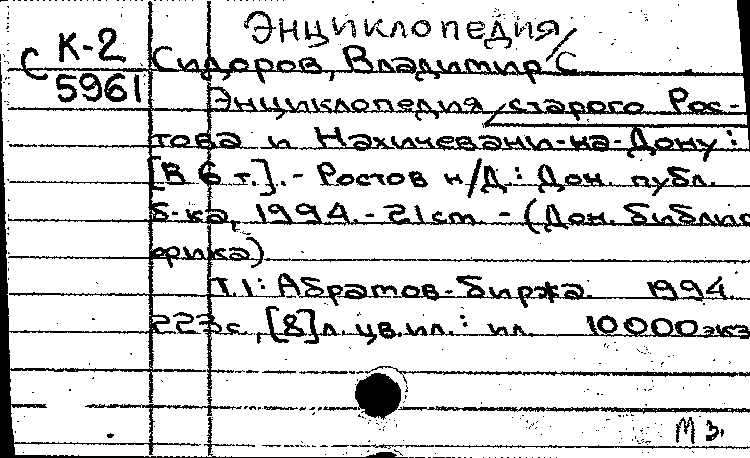 Энциклопедия/
С К-2
5961
Сидоров, Владимир С
Энциклопедия/старого Рос-
това и Нахичевани-на-Дону:
[В 6 т.]. - Ростов н/Д.: Дон. публ.
б-ка, 1994. - 21 cm. - (Дон. библио
фика)
Т.1: Абрамов-биржа. 1994
223 с, [8] л. цв. ил.: ил. 10000 экз
М 3.